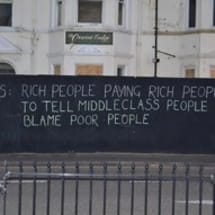 Crescent Lodge
S: RICH PEOPLE PAYING RICH PEOPL
TO TELL MIDDLECLASS PEOPLE
BLAME POOR PEOPLE